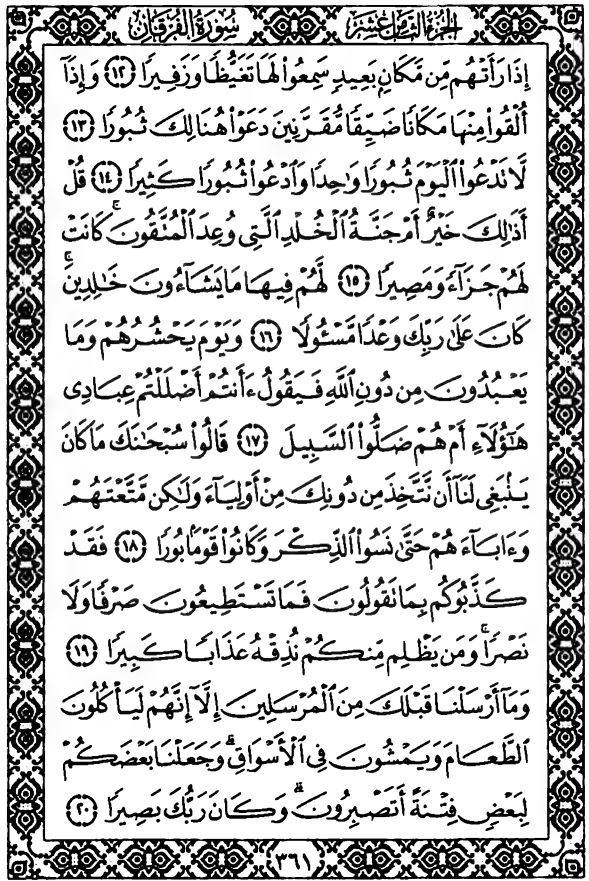 الجزء الثامن عشر سورة الفرقان
إِذَا رَأَتْهُم مِّن مَّكَانٍۭ بَعِيدٍ سَمِعُوا۟ لَهَا تَغَيُّظًا وَزَفِيرًا ﴿١٢﴾ وَإِذَآ
أُلْقُوا۟ مِنْهَا مَكَانًا ضَيِّقًا مُّقَرَّنِينَ دَعَوْا۟ هُنَالِكَ ثُبُورًا ﴿١٣﴾
لَّا تَدْعُوا۟ ٱلْيَوْمَ ثُبُورًا وَٰحِدًا وَٱدْعُوا۟ ثُبُورًا كَثِيرًا ﴿١٤﴾ قُلْ
أَذَٰلِكَ خَيْرٌ أَمْ جَنَّةُ ٱلْخُلْدِ ٱلَّتِى وُعِدَ ٱلْمُتَّقُونَ ۚ كَانَتْ
لَهُمْ جَزَآءً وَمَصِيرًا ﴿١٥﴾ لَّهُمْ فِيهَا مَا يَشَآءُونَ خَٰلِدِينَ ۚ
كَانَ عَلَىٰ رَبِّكَ وَعْدًا مَّسْـُٔولًا ﴿١٦﴾ وَيَوْمَ يَحْشُرُهُمْ وَمَا
يَعْبُدُونَ مِن دُونِ ٱللَّهِ فَيَقُولُ ءَأَنتُمْ أَضْلَلْتُمْ عِبَادِى
هَٰٓؤُلَآءِ أَمْ هُمْ ضَلُّوا۟ ٱلسَّبِيلَ ﴿١٧﴾ قَالُوا۟ سُبْحَٰنَكَ مَا كَانَ
يَنۢبَغِى لَنَآ أَن نَّتَّخِذَ مِن دُونِكَ مِنْ أَوْلِيَآءَ وَلَٰكِن مَّتَّعْتَهُمْ
وَءَابَآءَهُمْ حَتَّىٰ نَسُوا۟ ٱلذِّكْرَ وَكَانُوا۟ قَوْمًۢا بُورًا ﴿١٨﴾ فَقَدْ
كَذَّبُوكُم بِمَا تَقُولُونَ فَمَا تَسْتَطِيعُونَ صَرْفًا وَلَا
نَصْرًا ۚ وَمَن يَظْلِم مِّنكُمْ نُذِقْهُ عَذَابًا كَبِيرًا ﴿١٩﴾
وَمَآ أَرْسَلْنَا قَبْلَكَ مِنَ ٱلْمُرْسَلِينَ إِلَّآ إِنَّهُمْ لَيَأْكُلُونَ
ٱلطَّعَامَ وَيَمْشُونَ فِى ٱلْأَسْوَاقِ ۗ وَجَعَلْنَا بَعْضَكُمْ
لِبَعْضٍ فِتْنَةً أَتَصْبِرُونَ ۗ وَكَانَ رَبُّكَ بَصِيرًا ﴿٢٠﴾
٣٦١